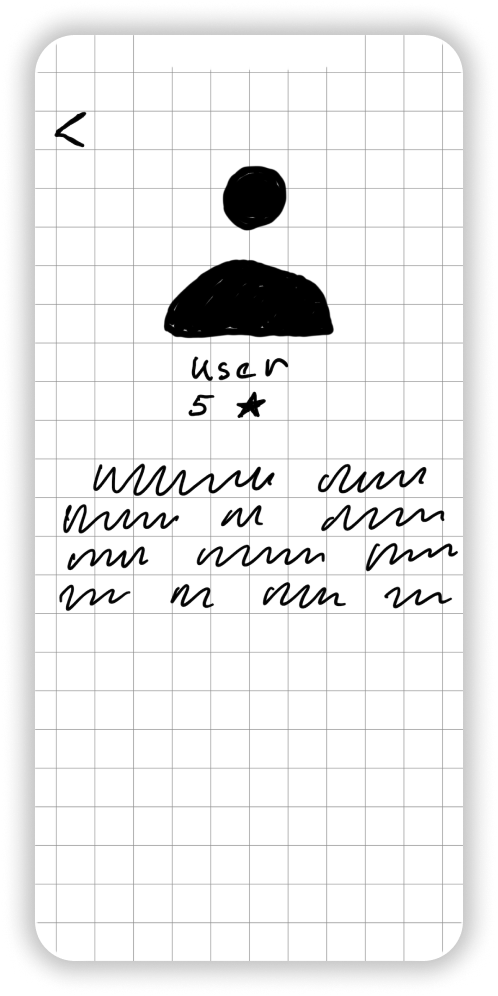 <
user
5 ★